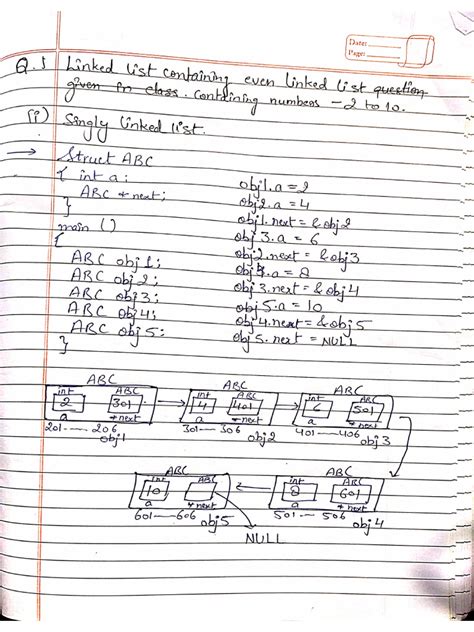 Date:
Page:
Q.1 Linked list containing even linked list question
given in class. containing numbers - 2 to 10.
(i) Singly linked list.
→ Struct ABC
{ int a;
ABC * next;
}
main ()
{
ABC obj1;
ABC obj2;
ABC obj3;
ABC obj4;
ABC obj5;
}
obj1.a = 2
obj2.a = 4
obj1.next = & obj2
obj3.a = 6
obj2.next = & obj3
obj4.a = 8
obj3.next = & obj4
obj5.a = 10
obj4.next = & obj5
obj5.next = NULL
ABC ABC ABC
int ABC int ABC int ABC
2 301 4 401 6 501
a * next a * next a * next
201 --- 206 obj1 301 --- 306 obj2 401 --- 406 obj3
ABC ABC
int ABC int ABC
10 8 601
a * next a * next
601 --- 606 obj5 501 --- 506 obj4
NULL